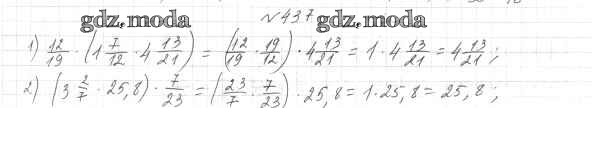 gdz.moda №437 gdz.moda
1) 12/19 · (1 7/12 · 4 13/21) = (12/19 · 19/12) · 4 13/21 = 1 · 4 13/21 = 4 13/21;
2) (3 2/7 · 25,8) · 7/23 = (23/7 · 7/23) · 25,8 = 1 · 25,8 = 25,8;